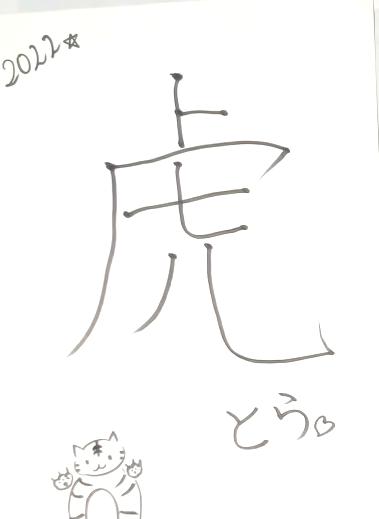 2022☆
虎
とら♡